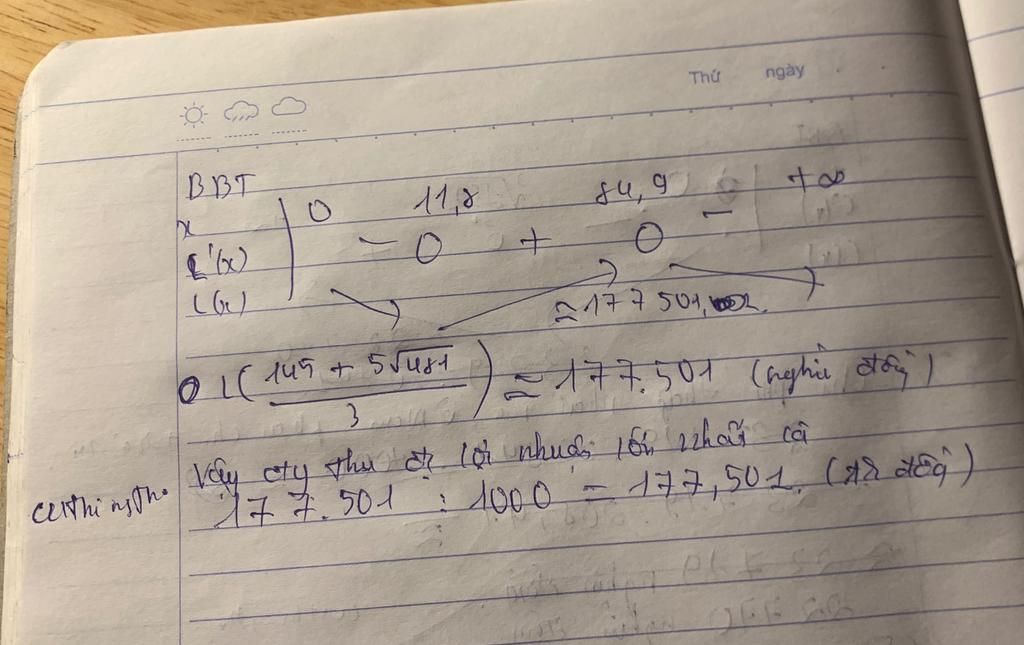 Thứ ngày
BBT
x 0 11,8 84,9 +∞
L'(x) - 0 + 0 -
L(x) ≈ 177 501,
L( (145 + 5√481) / 3 ) ≈ 177.501 (nghìn đồng)
Vậy cty thu đc lợi nhuận lớn nhất là
177.501 : 1000 = 177,501 (tr đồng)